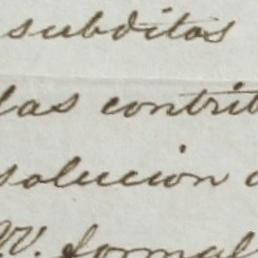 subditos
las contrib
solucion
VV. formal